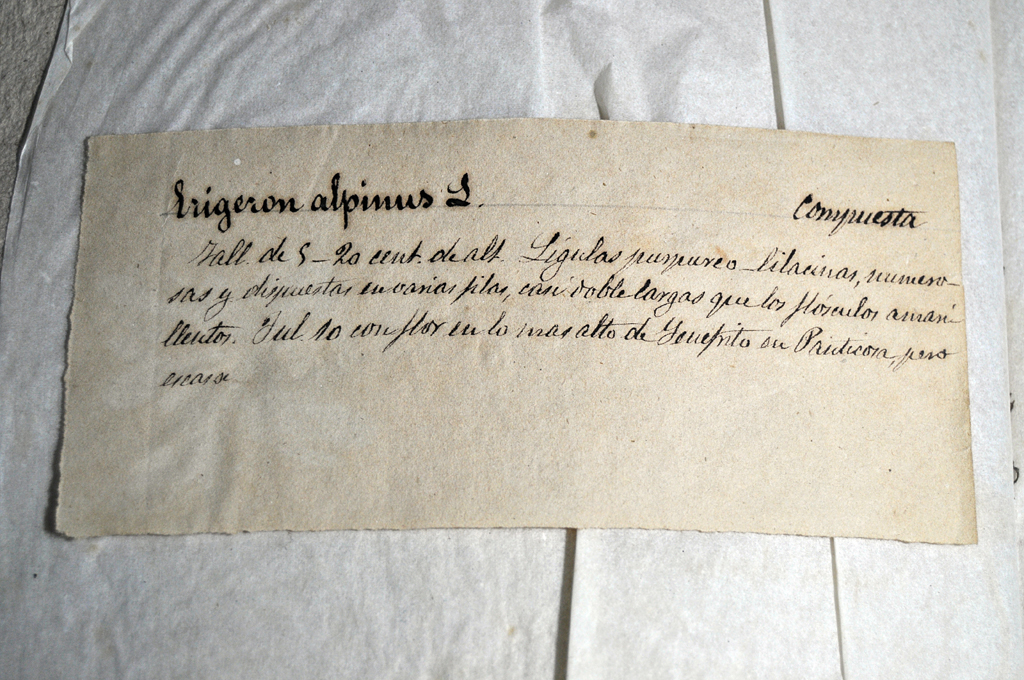 Erigeron alpinus L. Compuesta
Tall. de 5-20 cent. de alt. Lígulas purpureo-lilacinas, numero-
sas y dispuestas en varias filas, casi doble largas que los flósculos amari-
llentos. Jul. 10 con flor en lo mas alto de en Panticosa, pero
escasa